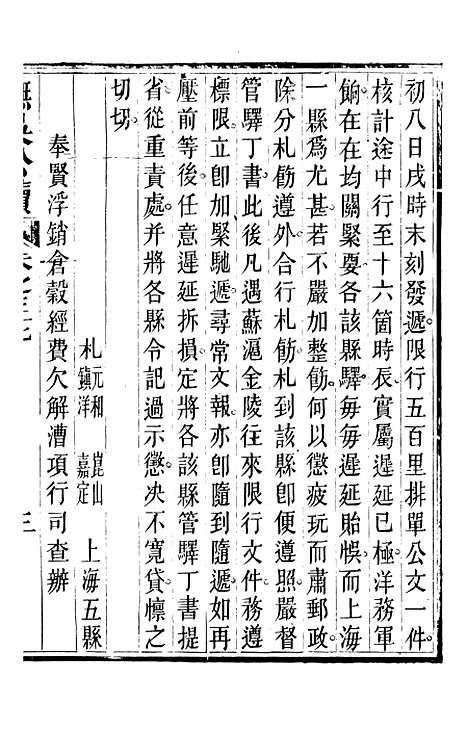 初八日戌時末刻發遞限行五百里排單公文一件
核計途中行至十六箇時辰實屬遲延已極洋務軍
餉在在均關緊要各該縣驛每每遲延貽悞而上海
一縣爲尤甚若不嚴加整飭何以懲疲玩而肅郵政
除分札飭遵外合行札飭札到該縣卽便遵照嚴督
管驛丁書此後凡遇蘇滬金陵往來限行文件務遵
標限立卽加緊馳遞尋常文報亦卽隨到隨遞如再
壓前等後任意遲延拆損定將各該縣管驛丁書提
省從重責處并將各縣令記過示懲決不寬貸懔之
切切
札元和 崑山 上海五縣
鎮洋 嘉定
奉賢浮銷倉穀經費欠解漕項行司查辦
撫吳公牘 卷
三